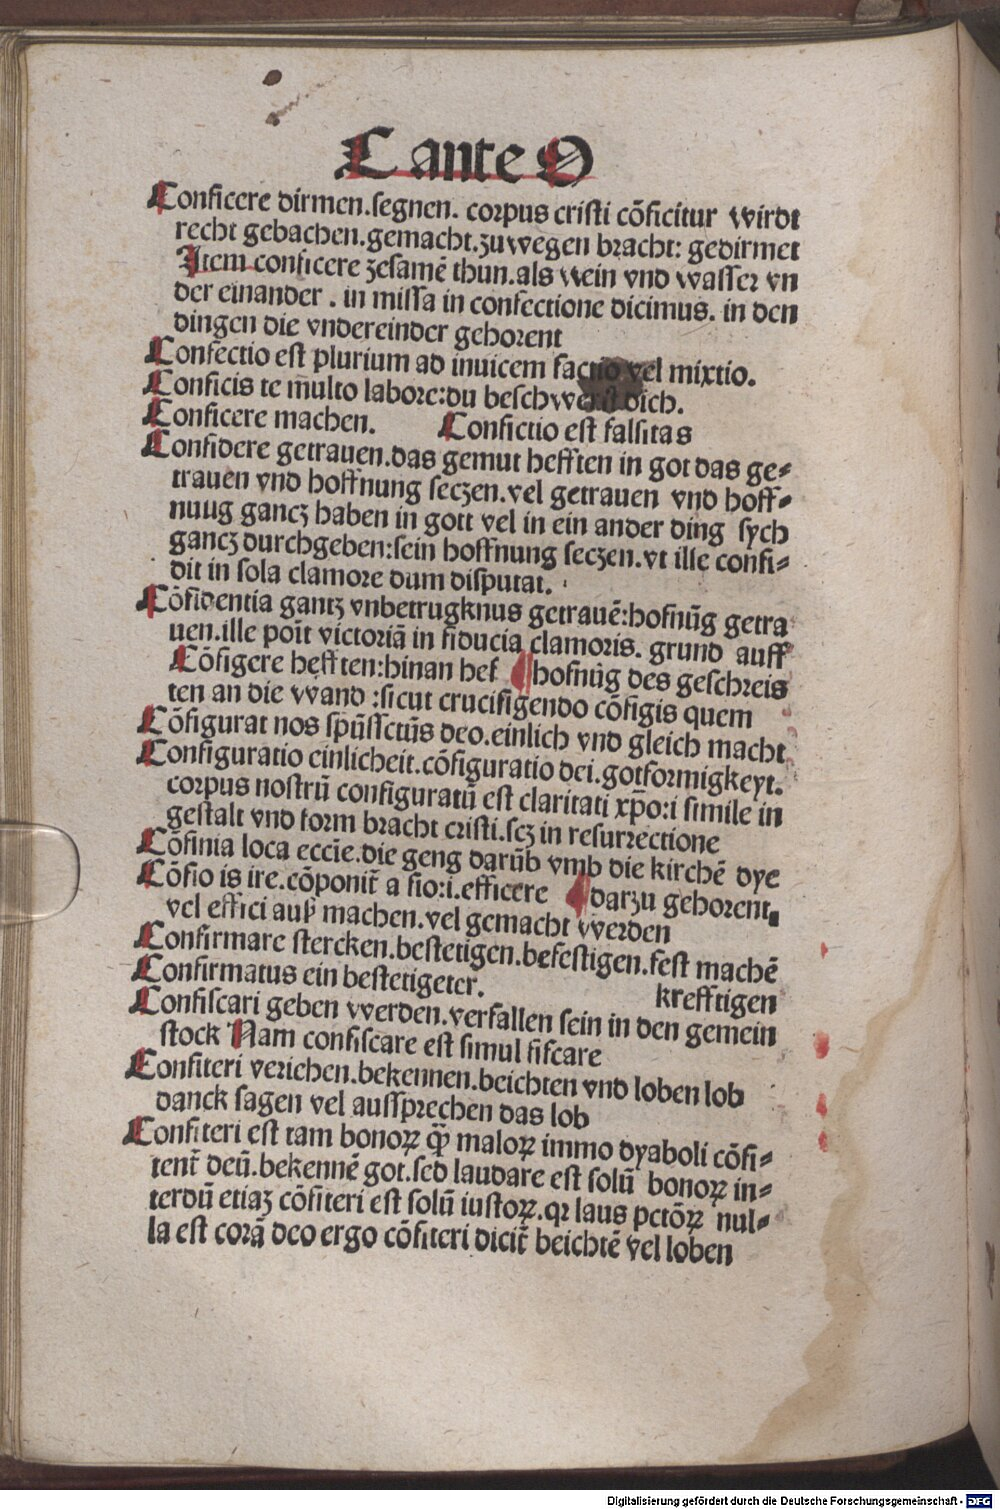 C ante O
Conficere dirmen.segnen. corpus cristi cōficitur wirdt
recht gebachen.gemacht.zuwegen bracht: gedirmet
Item conficere zesamē thun.als wein vnd wasser vn
der einander . in missa in confectione dicimus. in den
dingen die vndereinder gehorent
Confectio est plurium ad inuicem factio vel mixtio.
Conficis te multo labore:du beschwerst dich.
Conficere machen. Confictio est falsitas
Confidere getrauen.das gemut hefften in got das ge⸗
trauen vnd hoffnung seczen.vel getrauen vnd hoff⸗
nuug gancz haben in gott vel in ein ander ding sych
gancz durchgeben:sein hoffnung seczen.vt ille confi⸗
dit in sola clamore dum disputat.
Cōfidentia gantz vnbetrugknus getrauē:hofnūg getra
uen.ille poīt victoriā in fiducia clamoris. grund auff
Cōfigere hefften:hinan hef ¶ hofnūg des geschreis
ten an die wand :sicut crucifigendo cōfigis quem
Cōfigurat nos spūssctūs deo.einlich vnd gleich macht
Configuratio einlicheit.cōfiguratio dei.gotformigkeyt.
corpus nostrū configuratū est claritati xp̄o:i simile in
gestalt vnd form bracht cristi.scz in resurrectione
Cōfinia loca eccīe.die geng darūb vmb die kirchē dye
Cōfio is ire.cōponit̄ a fio:i.efficere ¶ darzu gehorent.
vel effici auß machen.vel gemacht werden
Confirmare stercken.bestetigen.befestigen.fest machē
Confirmatus ein bestetigeter. krefftigen
Confiscari geben werden.verfallen sein in den gemein
stock Nam confiscare est simul fiscare
Confiteri verichen.bekennen.beichten vnd loben lob
danck sagen vel aussprechen das lob
Confiteri est tam bonoꝝ qꝫ̄ maloꝝ immo dyaboli cōfi⸗
tent̄ deū.bekennē got.sed laudare est solū bonoꝝ in⸗
terdū etiaz cōfiteri est solū iustoꝝ.qr laus pctōꝝ nul⸗
la est corā deo ergo cōfiteri dicit̄ beichtē vel loben
Digitalisierung gefördert durch die Deutsche Forschungsgemeinschaft - DFG